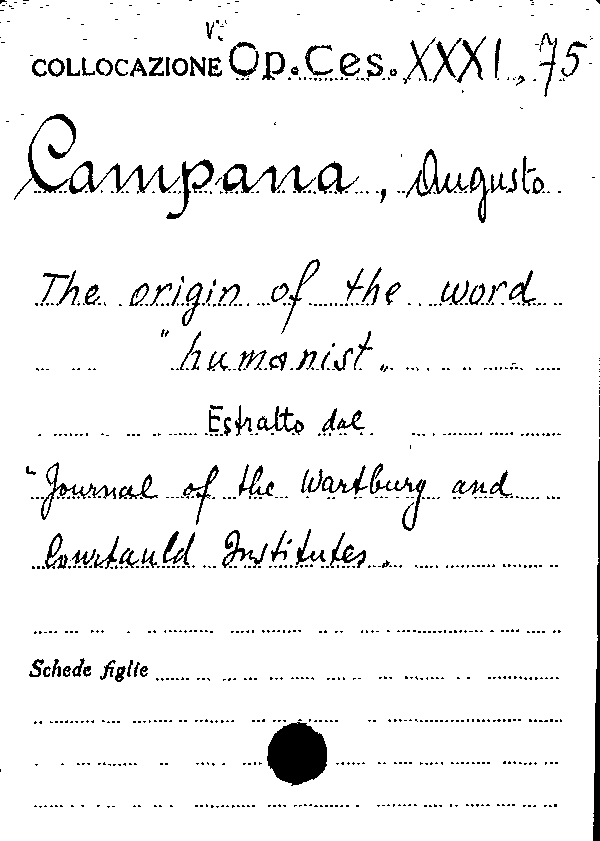 V.
COLLOCAZIONE Op. Ces. XXXI, 75
Campana, Augusto
The origin of the word
"humanist„
Estratto dal
"Journal of the Wartburg and
Courtauld Institutes„
Schede figlie